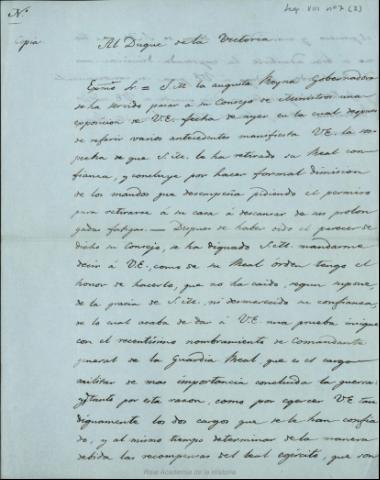 Leg. VIII nº 7 (2)
Nº
Copia
Al Duque de la Victoria
Exmo Sr = S.M. la augusta Reyna Gobernadora
se ha servido pasar a su Consejo de Ministros una
exposicion de V.E. fecha de ayer en la cual despues
de referir varios antecedentes manifiesta V.E. la sos-
pecha de que S.M. le ha retirado su Real con-
fianza, y concluye por hacer formal dimision
de los mandos que desempeña pidiendo el permiso
para retirarse á su casa á descansar de sus prolon-
gadas fatigas. — Despues de haber oido el parecer de
dicho su Consejo, se ha dignado S.M. mandarme
decir á V.E., como de su Real órden tengo el
honor de hacerlo, que no ha caido, segun supone,
de la gracia de S.M. ni desmerecido su confianza,
de la cual acaba de dar á V.E. una prueba
con el recentisimo nombramiento de Comandante
general de la Guardia Real, que es el cargo
militar de mas importancia concluida la guerra:
tanto por esta razon, como por egercer V.E. tan
dignamente los dos cargos que se le han confia-
do, y al mismo tiempo determinar de la manera
debida las recompensas del leal egército, que son
Real Academia de la Historia